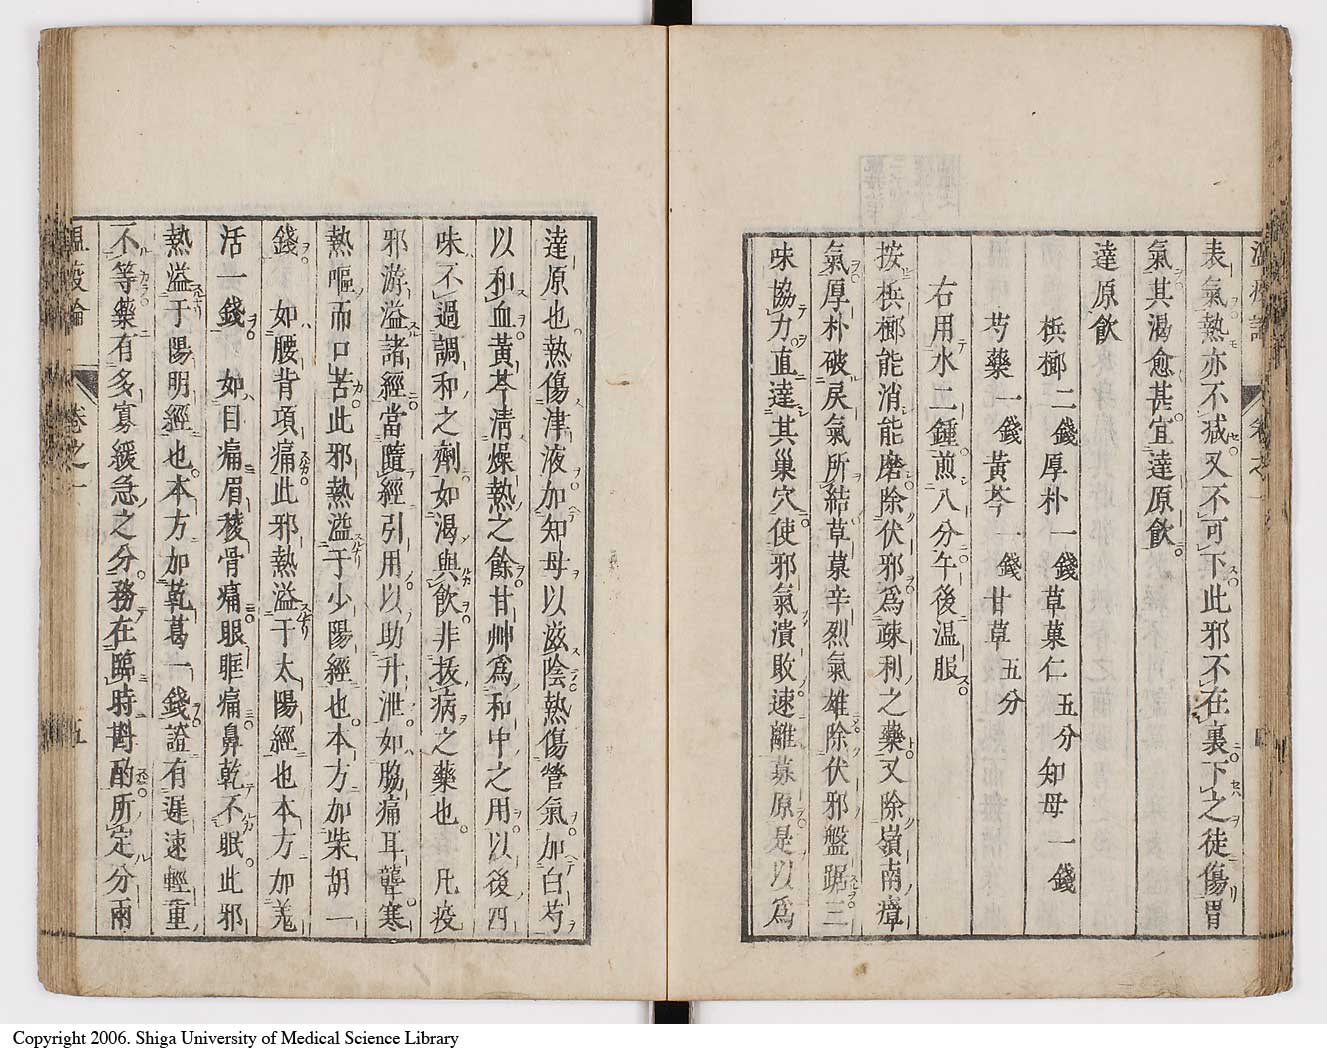 表氣熱亦不減又不可下此邪不在裏下之徒傷胃
氣其渴愈甚宜達原飲
達原飲
梹榔二錢厚朴一錢草菓仁五分知母一錢
芍藥一錢黃芩一錢甘草五分
右用水二鍾煎八分午後温服
按梹榔能消能磨除伏邪爲疎利之藥又除嶺南瘴
氣厚朴破戾氣所結草菓辛烈氣雄除伏邪盤踞三
味協力直達其巢穴使邪氣潰敗速離募原是以爲
達原也熱傷津液加知母以滋陰熱傷營氣加白芍
以和血黃芩清燥熱之餘甘艸爲和中之用以後四
味不過調和之劑如渴與飲非拔病之藥也凡疫
邪游溢諸經當隨經引用以助升泄如脇痛耳聾寒
熱嘔而口苦此邪熱溢于少陽經也本方加柴胡一
錢如腰背項痛此邪熱溢于太陽經也本方加羗
活一錢如目痛眉稜骨痛眼眶痛鼻乾不眠此邪
熱溢于陽明經也本方加乾葛一錢證有遲速輕重
不等藥有多寡緩急之分務在臨時斟酌所定分兩
溫疫論 卷之一 五
Copyright 2006. Shiga University of Medical Science Library